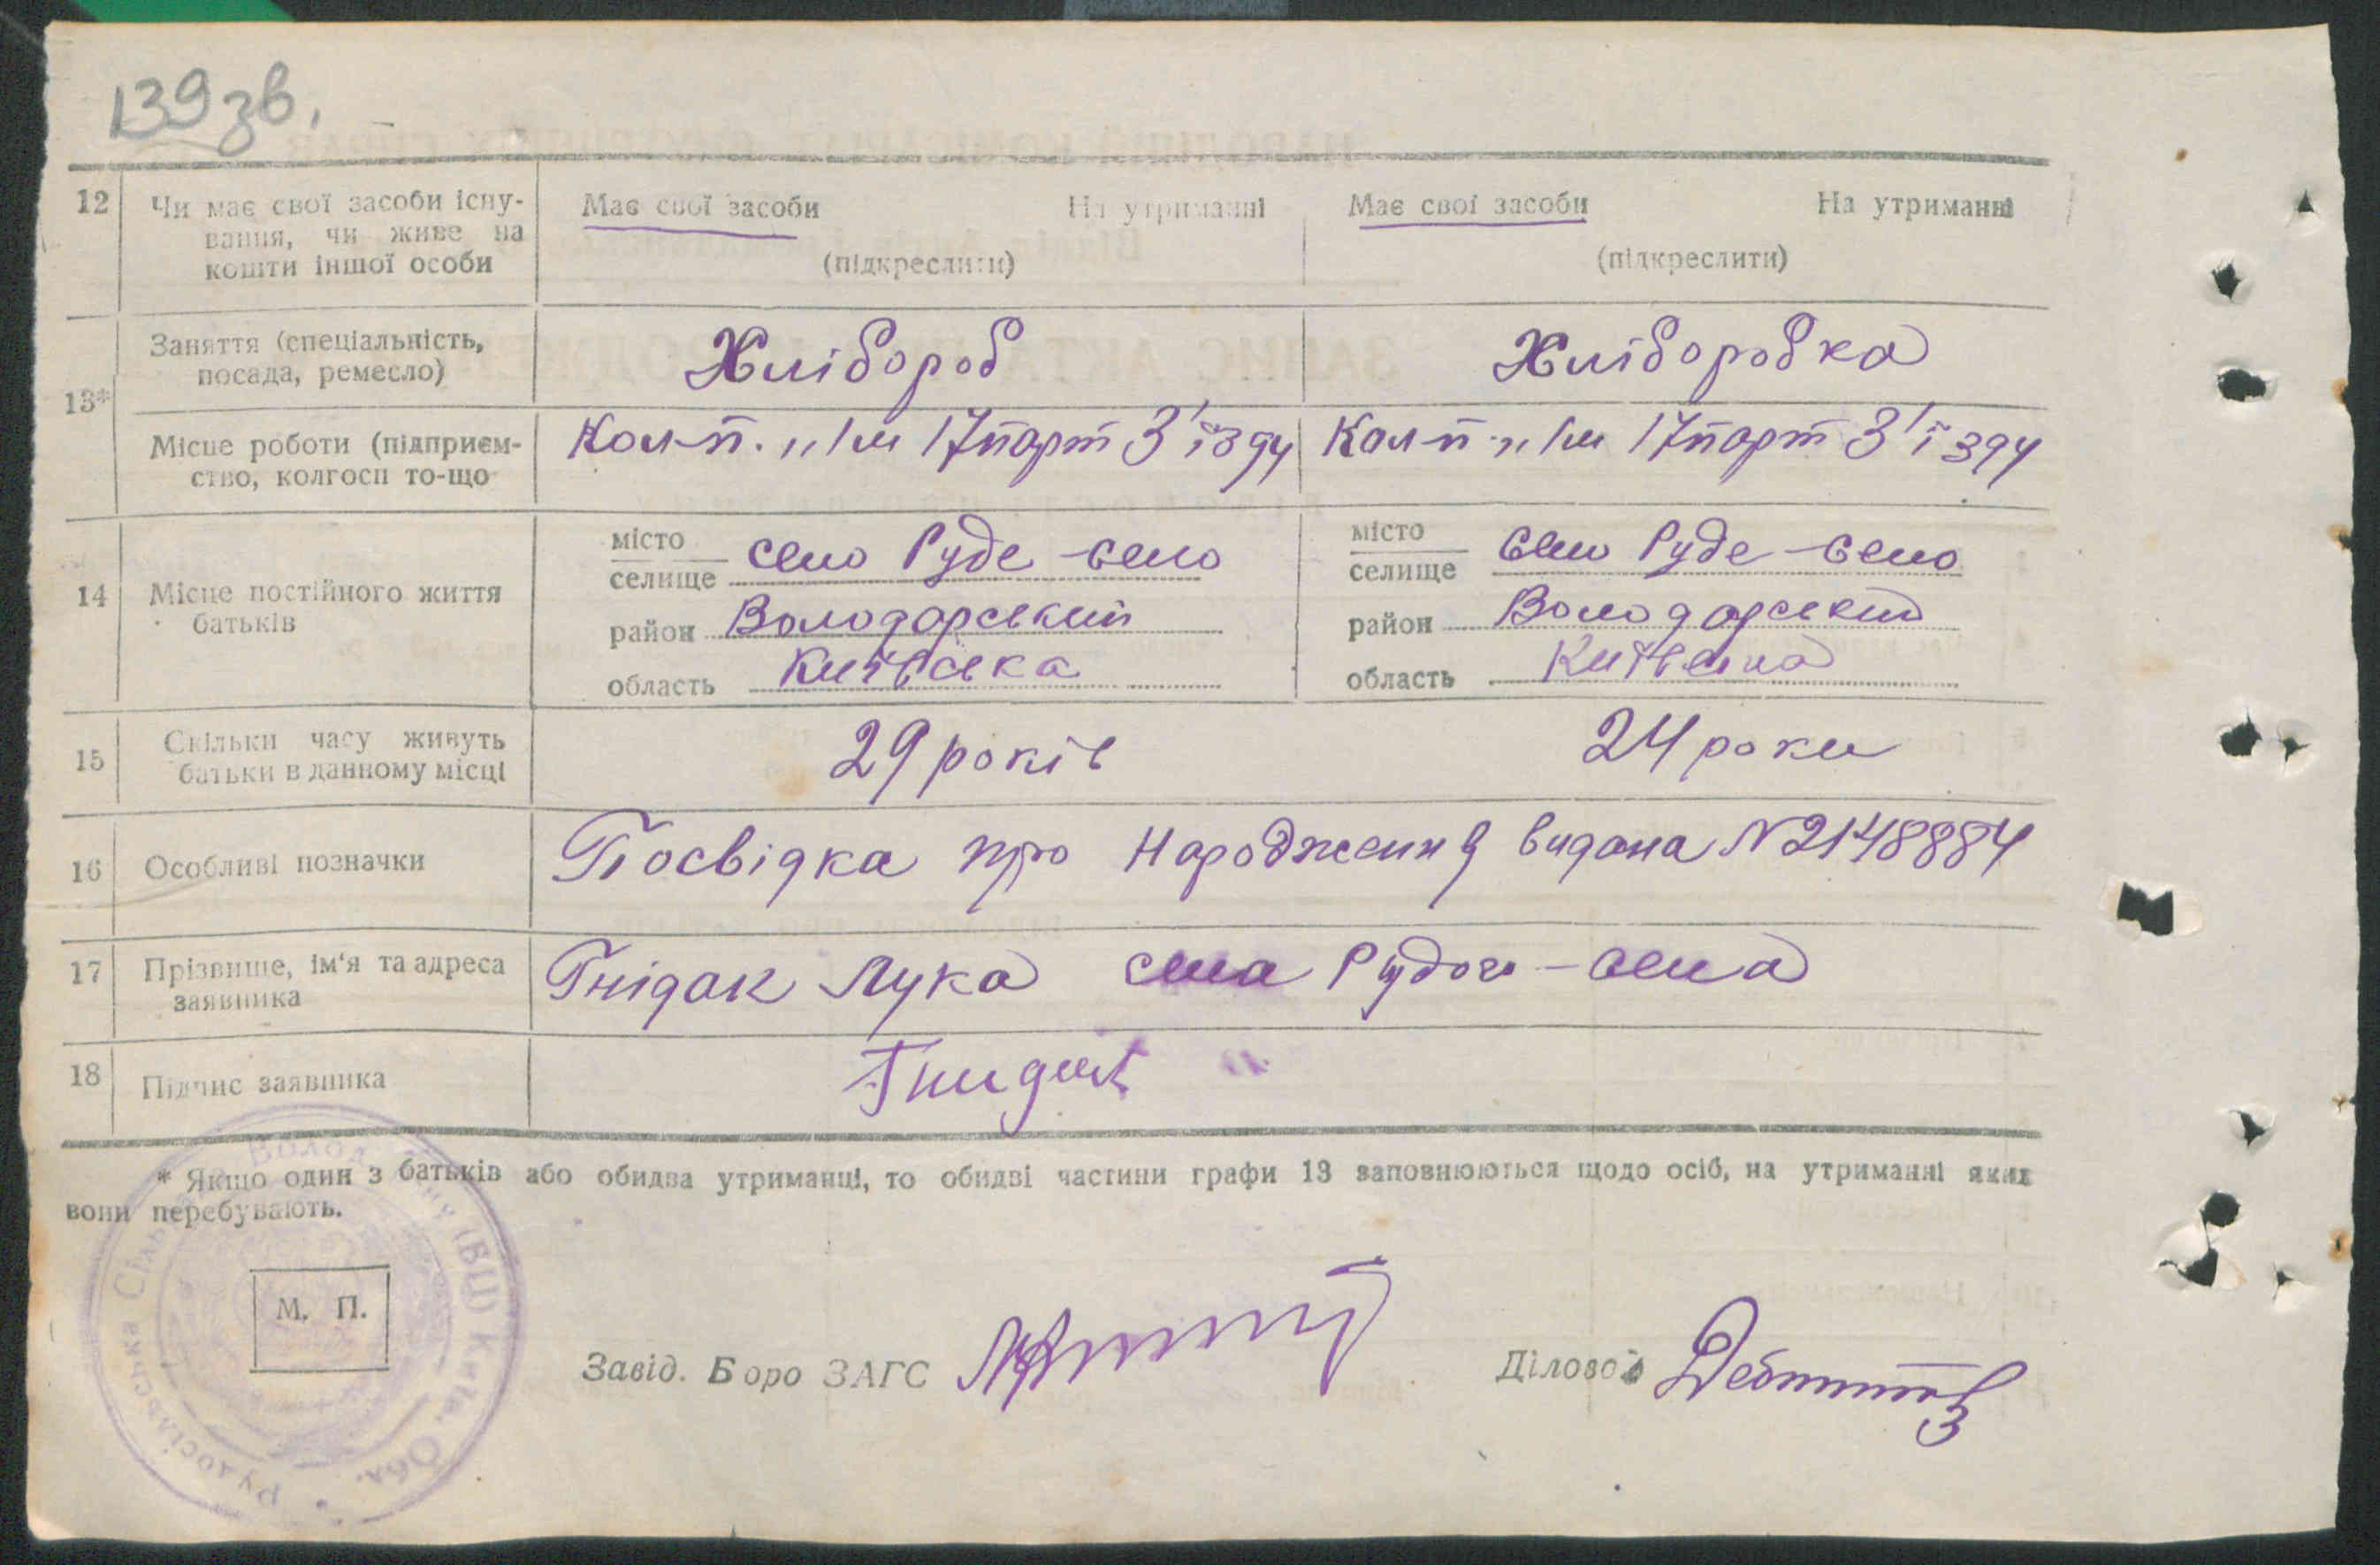 139 зв.
12 Чи має свої засоби існу-
вання, чи живе на
кошти іншої особи
Має свої засоби На утриманні
(підкреслити)
Має свої засоби На утриманні
(підкреслити)
13*
Заняття (спеціальність,
посада, ремесло)
Хлібороб
Хліборобка
Місце роботи (підприєм-
ство, колгосп то-що
Кол-п. 17 парт З'їзду
Кол-п 17 парт З'їзду
14 Місце постійного життя
батьків
місто
селище село Руде-село
район Володарський
область Київська
місто
селище село Руде-село
район Володарський
область Київська
15 Скільки часу живуть
батьки в данному місці
29 років
24 роки
16 Особливі позначки
Посвідка про народження видана N 2148884
17 Прізвище, ім'я та адреса
заявника
Гнідак Лука села Рудого-села
18 Підпис заявника
Гнидак
* Якщо один з батьків або обидва утриманці, то обидві частини графи 13 заповнюються щодо осіб, на утриманні яких
вони перебувають.
М. П.
Рудосільська Сільська
(БЦ) Київ. Обл.
Завід. Боро ЗАГС
Діловод